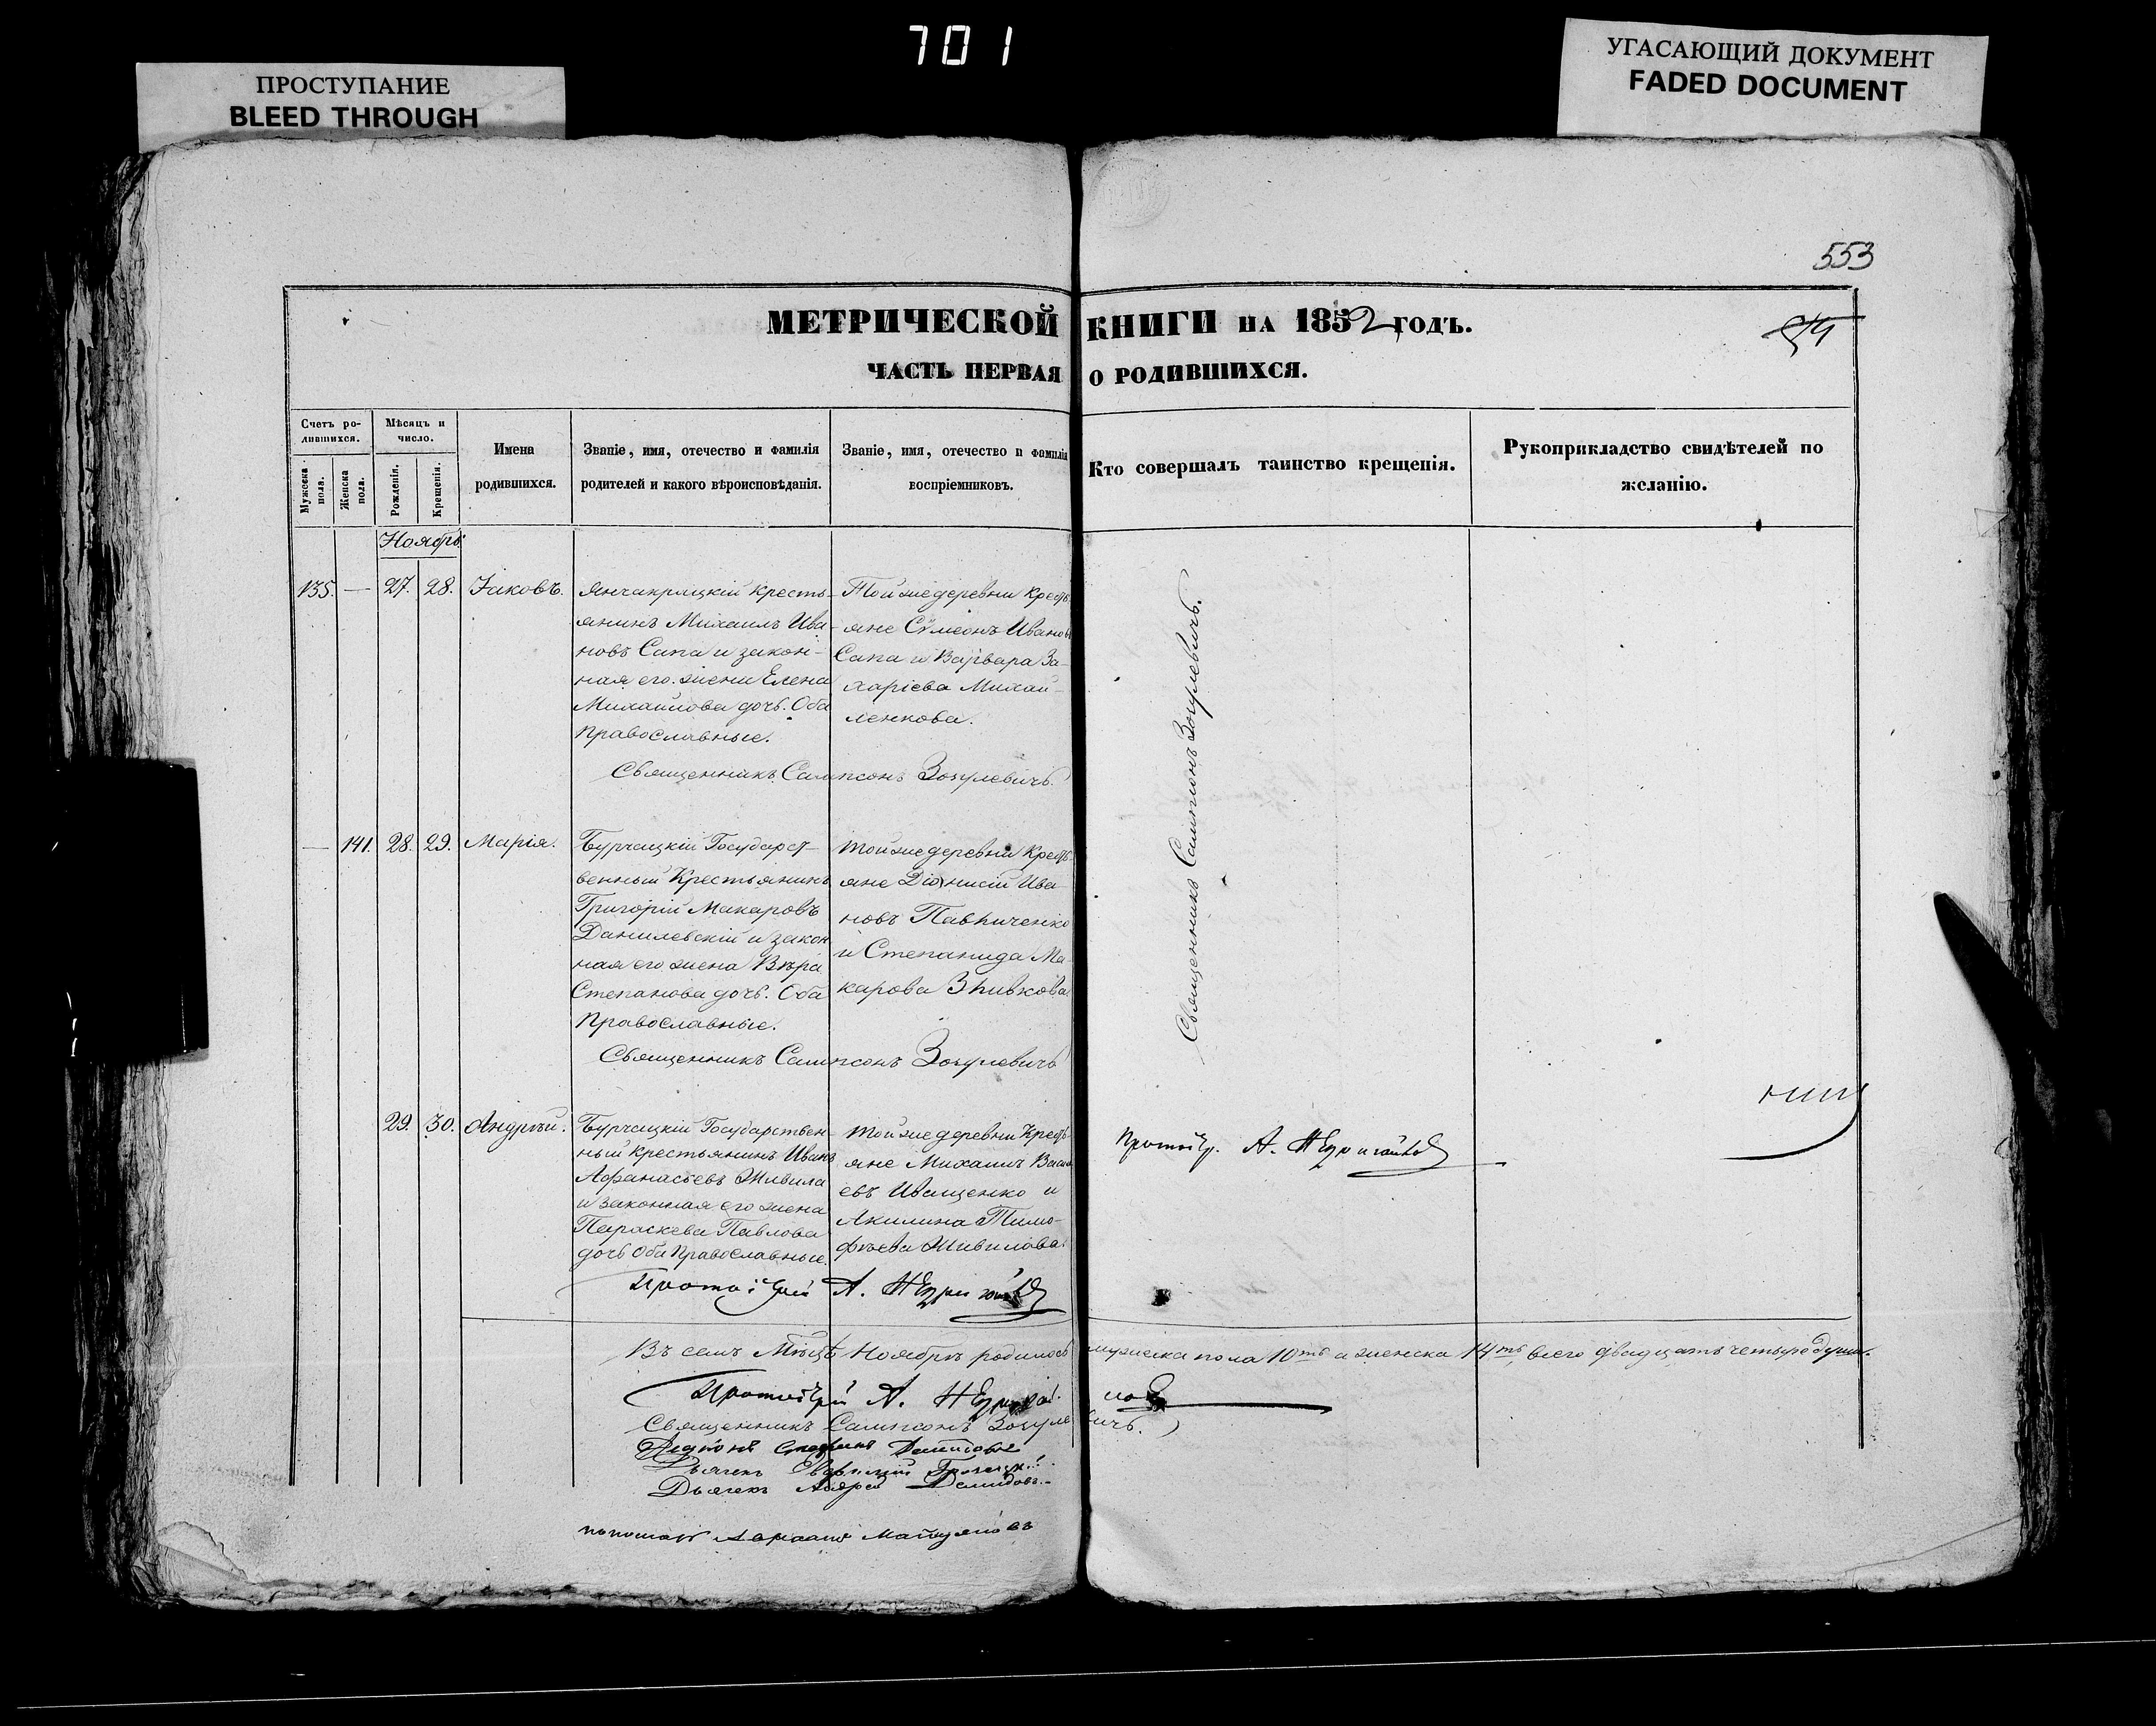 701
ПРОСТУПАНИЕ
BLEED THROUGH
УГАСАЮЩИЙ ДОКУМЕНТ
FADED DOCUMENT
553
МЕТРИЧЕСКОЙ КНИГИ НА 1852 ГОДЪ.
ЧАСТЬ ПЕРВАЯ О РОДИВШИХСЯ.
Счетъ ро-
дившихся.
Мужеска
пола.
Женска
пола.
Мѣсяцъ и
число.
Рожденія.
Крещенія.
Имена
родившихся.
Званіе, имя, отечество и фамилія
родителей и какого вѣроисповѣданія.
Званіе, имя, отечество и фамилія
воспріемниковъ.
Кто совершалъ таинство крещенія.
Рукоприкладство свидѣтелей по
желанію.
Ноябрь
135. — 27. 28. Іаковъ.
Янчакрицкій кресть-
янинъ Михаилъ Ива-
новъ Сапа и закон-
ная его жена Елена
Михаилова дочь. Оба
Православные.
Той же деревни крест-
яне Сѵмеонъ Иванов
Сапа и Варвара За-
харіева Михай-
ленкова.
Священникъ Сампсонъ Зогулевичъ.
Священникъ Сампсонъ Зогулевичъ.
— 141. 28. 29. Марія.
Бурчацкій Государст-
венный Крестьянинъ
Григорій Макаровъ
Данилевскій и закон
ная его жена Вѣра
Степанова дочь. Оба
Православные.
Той же деревни Крест-
яне Діонисій Ива-
новъ Павниченко
и Степанида Ма-
карова
Священникъ Сампсонъ Зогулевичъ
29. 30. Андрей.
Бурчацкій Государствен-
ный Крестьянинъ Иванъ
Афанасьевъ Живила
и законная его жена
Параскева Павлова
дочь Оба Православные.
Той же деревни Крест-
яне Михаилъ Васил
евъ Иващенко и
Акилина Тимо-
фѣева Живилова.
Протоіер. А.
Протоіерей А.
Въ семъ Мѣсцѣ Ноябрѣ родилось мужеска пола 10ть а женска 14ть, всего двадцать четыре души.
Протоіерей А.
Священникъ Сампсонъ Зогулевичъ.
Дьячекъ Евфимій
Дьячекъ Андрей Демидовъ.